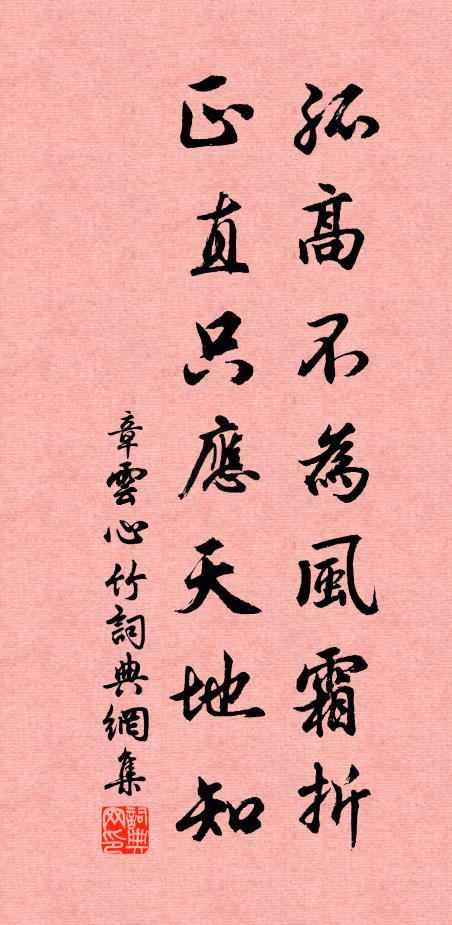 孤高不為風霜折
正直只應天地知
章雲心竹詞典網集
詞典网印